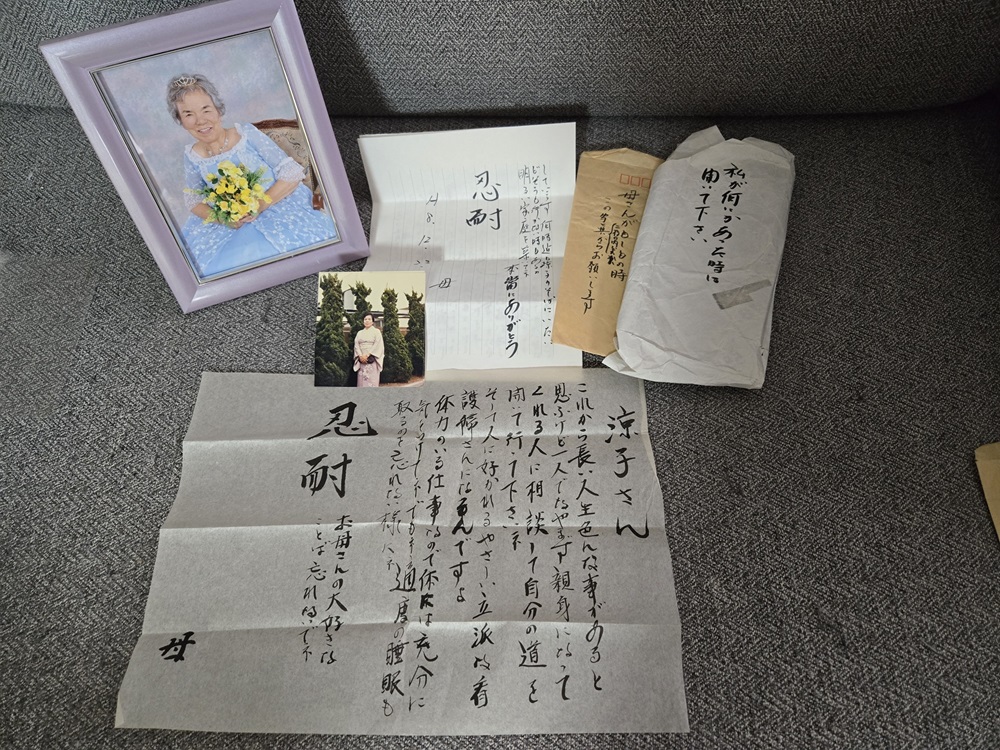 何時迄も涼子のそばにいたい
明るい家庭を
本当にありがとう
忍耐
H8.12.23
母
母さんがもしもの時
この写真 お願いします
私が何かあった時は
開いて下さい
涼子さん
これから長い人生色んな事があると
思ふけど一人でなやまず親身になって
くれる人に相談して自分の道を
開いて行って下さいネ
そして人に好かれるやさしい立派な看
護婦さんになるんですよ
体力のいる仕事なので体には充分に
気をつけて 適度の睡眠も
取るのを忘れない様にネ
忍耐
お母さんの大好きな
ことば忘れないでネ
母